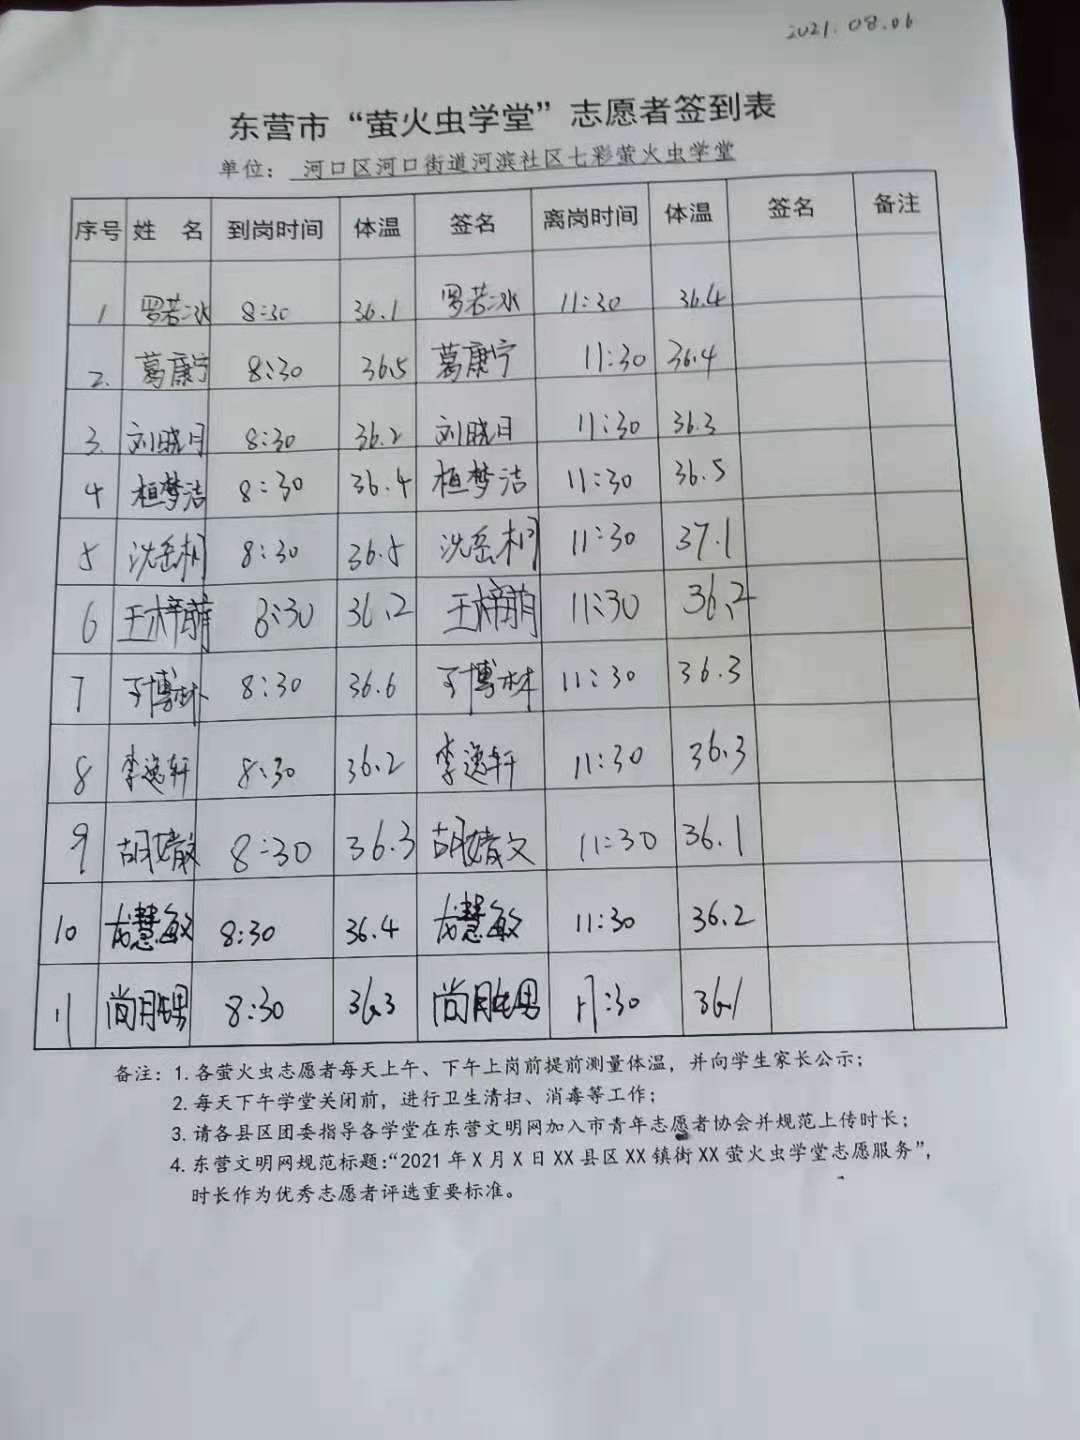 2021.08.06
东营市“萤火虫学堂”志愿者签到表
单位： 河口区河口街道河滨社区七彩萤火虫学堂
序号 姓 名 到岗时间 体温 签名 离岗时间 体温 签名 备注
1 罗若冰 8:30 36.1 罗若冰 11:30 36.4
2. 葛康宁 8:30 36.5 葛康宁 11:30 36.4
3. 刘晓月 8:30 36.2 刘晓月 11:30 36.3
4 桓梦洁 8:30 36.4 桓梦洁 11:30 36.5
5 沈岳桐 8:30 36.5 沈岳桐 11:30 37.1
6 王梓萌 8:30 36.2 王梓萌 11:30 36.2
7 于博林 8:30 36.6 于博林 11:30 36.3
8 李逸轩 8:30 36.2 李逸轩 11:30 36.3
9 胡婧文 8:30 36.3 胡婧文 11:30 36.1
10 慧敏 8:30 36.4 慧敏 11:30 36.2
11 尚 8:30 36.3 尚 11:30 36.1
备注：1. 各萤火虫志愿者每天上午、下午上岗前提前测量体温，并向学生家长公示；
2. 每天下午学堂关闭前，进行卫生清扫、消毒等工作；
3. 请各县区团委指导各学堂在东营文明网加入市青年志愿者协会并规范上传时长；
4. 东营文明网规范标题：“2021 年 X 月 X 日 XX 县区 XX 镇街 XX 萤火虫学堂志愿服务”，
时长作为优秀志愿者评选重要标准。